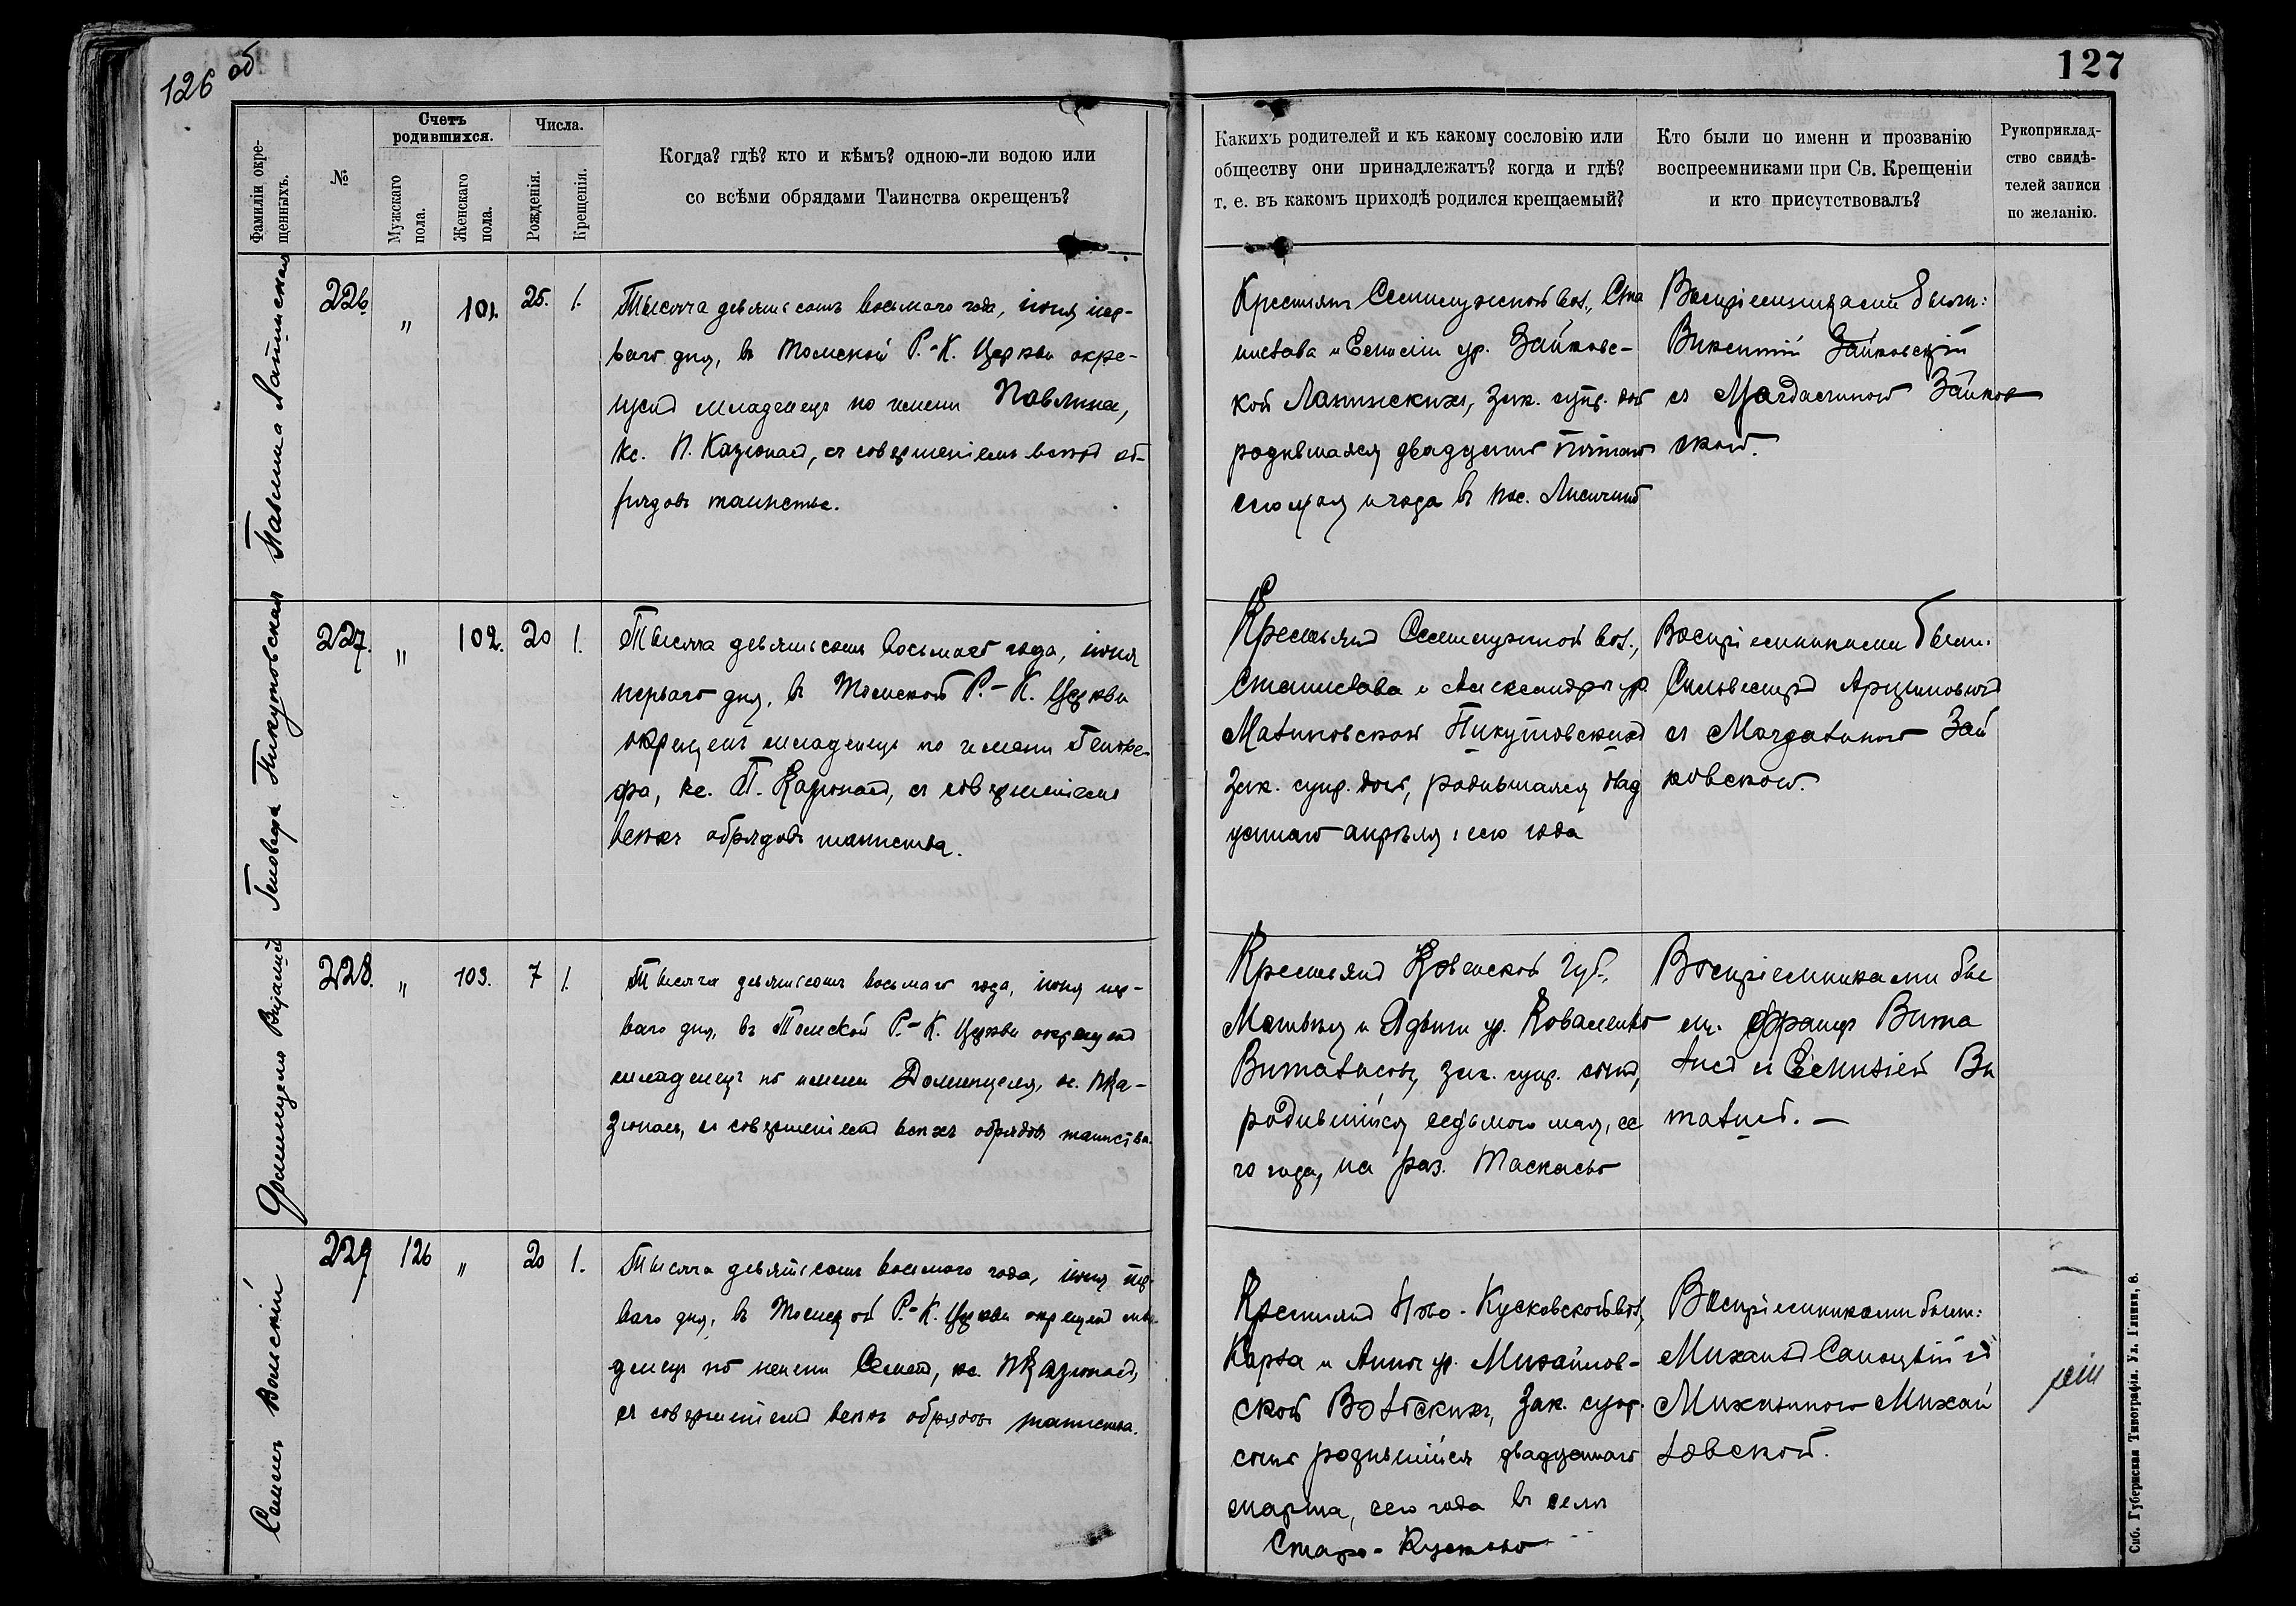 126 об
127
Фамиліи окре-
щенныхъ.
№
Счетъ
родившихся.
Мужскаго
пола.
Женскаго
пола.
Числа.
Рожденія.
Крещенія.
Когда? гдѣ? кто и кѣмъ? одною-ли водою или
со всѣми обрядами Таинства окрещенъ?
Какихъ родителей и къ какому сословію или
обществу они принадлежатъ? когда и гдѣ?
т. е. въ какомъ приходѣ родился крещаемый?
Кто были по имени и прозванію
воспреемниками при Св. Крещеніи
и кто присутствовалъ?
Рукоприклад-
ство свидѣ-
телей записи
по желанію.
Павлина Лапинская
226.
"
101.
25.
1.
Тысяча девятьсотъ восьмаго года, іюня пер-
ваго дня, въ Томской Р.-К. Церкви окре-
щенъ младенецъ по имени Павлина,
кс. П. Казюнасъ, съ совершеніемъ всѣхъ об-
рядовъ таинства.
Крестьянъ Семилужной вол., Ста
нислава и ур. Зайковс-
кой Лапинскихъ, зак. супр. доч
родившаяся двадцать пятаго
сего мая и года въ пос.
Воспріемниками были:
Викентій Зайковскій
съ Магдалиной Зайков
ской.
Геновефа Пикутовская
227.
"
102.
20
1.
Тысяча девятьсотъ восьмаго года, іюня
перваго дня, въ Томской Р.-К. Церкви
окрещенъ младенецъ по имени Генове-
фа, кс. П. Казюнасъ, съ совершеніемъ
всѣхъ обрядовъ таинства.
Крестьянъ Семилужной вол.,
Станислава и Александры ур.
Малиновской Пикутовскихъ
зак. супр. доч, родившаяся двад
цатаго апрѣля сего года
Воспріемниками были:
Сильвестръ Арцимовичъ
съ Магдалиной Зай
ковской.
Доминцеля Виталисъ
228.
"
103.
7
1.
Тысяча девятьсотъ восьмаго года, іюня пер-
ваго дня, въ Томской Р.-К. Церкви окрещенъ
младенецъ по имени Доминцеля, кс. П. Ка-
зюнасъ, съ совершеніемъ всѣхъ обрядовъ таинства.
Крестьянъ Ковенской губ.,
Матвѣя и Ядвиги ур.
Виталисовъ, зак. супр. сынъ,
родившійся седьмого мая, се
го года, на раз.
Воспріемниками бы
ли: Францъ Вита
лисъ съ Ви
талисъ. —
Семенъ Вольскій
229
126
"
20
1.
Тысяча девятьсотъ восьмого года, іюня пер-
ваго дня, въ Томской Р.-К. Церкви окрещенъ мла-
денецъ по имени Семенъ, кс. П. Казюнасъ,
съ совершеніемъ всѣхъ обрядовъ таинства.
Крестьянъ Ново-Кусковской вол.,
Карла и Анны ур. Михайлов-
ской Вольскихъ, зак. супр.
сынъ родившійся двадцатаго
марта, сего года въ селѣ
Старо-Кусково
Воспріемниками были:
Михаилъ съ
Михалиной Михай
ловской.
Спб. Губернская Типографія. Ул. Глинки, 8.